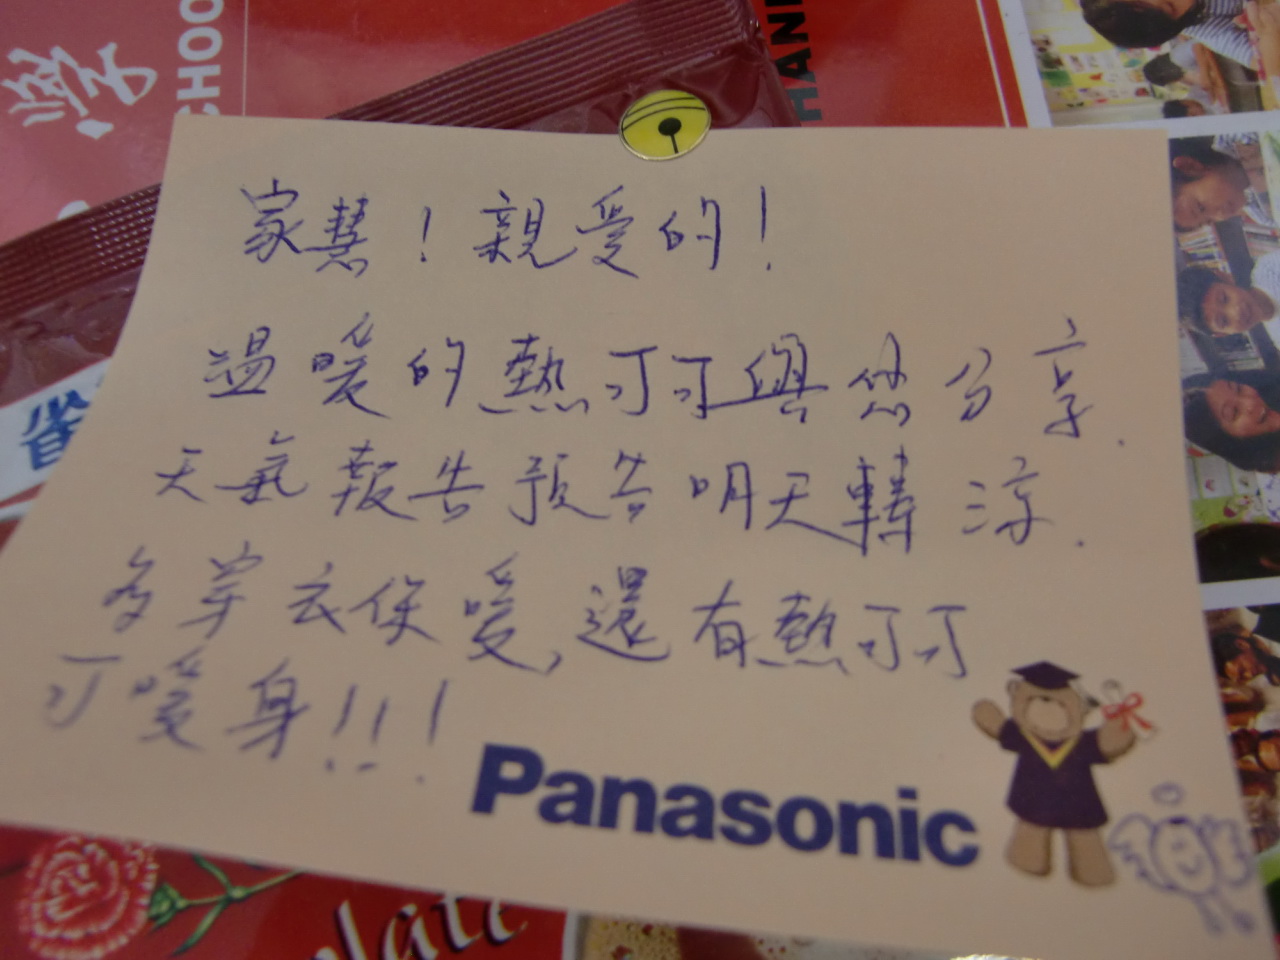 學
CHOO
HAN
家慧！親愛的！
溫暖的熱可可與您分享.
天氣報告預告明天轉涼.
多穿衣保暖,還有熱可可
可暖身!!!
Panasonic
省
late